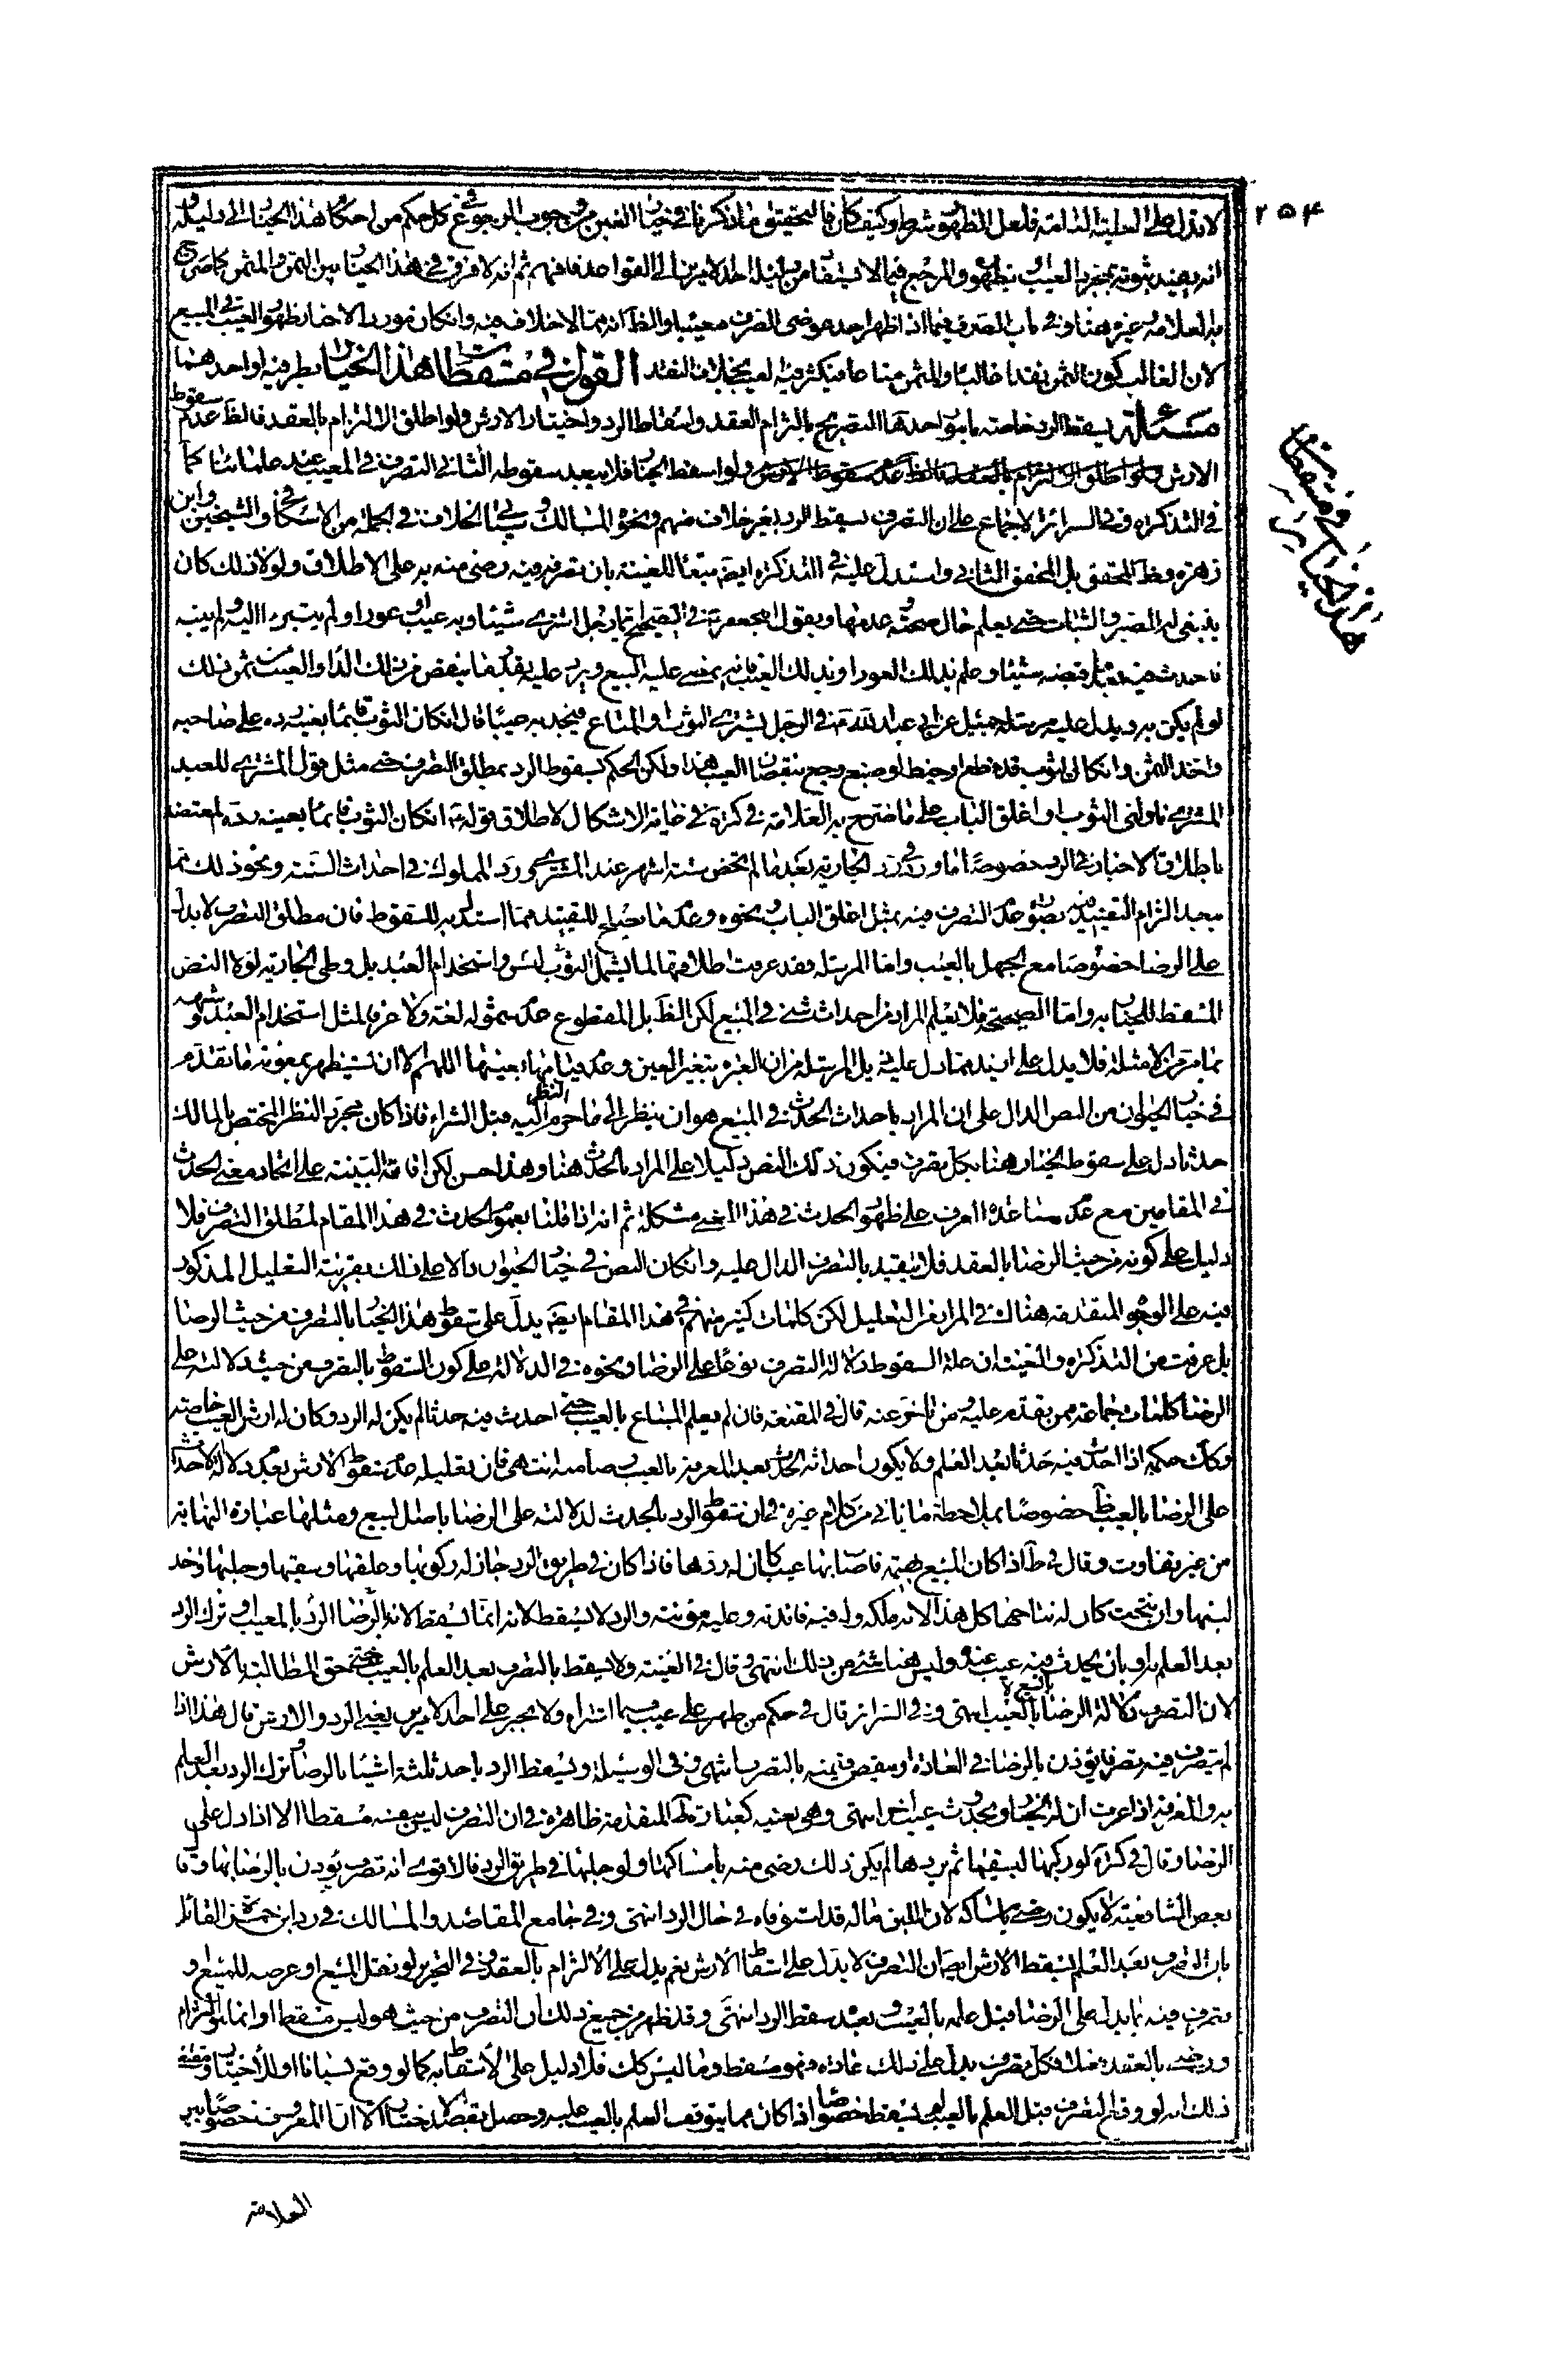 ٢٥۴
لا تدل على العلية التامة فلعل الظهور شرط وكيف كان فالتحقيق ما ذكرنا في خيار الغبن من وجوب الرجوع في كل حكم من احكام هذا الخيار الى دليله و
انه يفيد ثبوته بمجرد العيب او بظهوره والمرجع فيما لا يستفاد من دليله احد الامرين الى القواعد فافهم ثم انه لا فرق في هذا الخيار بين الثمن والمثمن كما صرح
به العلامة وغيره هنا وفي باب الصرف فيما اذا ظهر احد عوضي الصرف معيبا والظ انه مما لا خلاف فيه وان كان مورد الاخبار ظهور العيب في المبيع
لان الغالب كون الثمن نقدا غالبا والمثمن متاعا فيكثر فيه العيب بخلاف النقد القول في مسقطات هذا الخيار بطرفيه او احدهما
مسئلة يسقط الرد خاصة بامور احدها التصريح بالتزام العقد واسقاط الرد واختيار الارش ولو اطلق الالتزام بالعقد فالظ عدم سقوط
الارش ولو اسقط الخيار فلا يبعد سقوطه الثاني التصرف في المعيب عند علمائنا كما
في التذكرة وفي السرائر الاجماع على ان التصرف يسقط الرد بغير خلاف منهم ونحوه المسالك وسيأتي الخلاف في الجملة من الاسكافي والشيخين وابن
زهرة وظ المحقق بل المحقق الثاني واستدل عليه في التذكرة ايضا تبعا للغنية بان تصرفه فيه رضى منه به على الاطلاق ولولا ذلك كان
ينبغي له الصبر والثبات حتى يعلم حال صحته وعدمها وبقول ابي جعفر ع في الصحيح ايما رجل اشترى شيئا وبه عيب او عوار ولم يتبرء اليه ولم يبينه
فاحدث فيه بعد ما قبضه شيئا وعلم بذلك العوار وبذلك العيب فانه يمضى عليه البيع ويرد عليه بقدر ما ينقص من ذلك الداء والعيب من ثمن ذلك
لو لم يكن به ويدل عليه مرسلة جميل عن ابي عبد الله ع في الرجل يشترى الثوب او المتاع فيجد به عيبا قال ان كان الثوب قائما بعينه رده على صاحبه
واخذ الثمن وان كان الثوب قد قطع او خيط او صبغ رجع بنقصان العيب هذا ولكن الحكم بسقوط الرد بمطلق التصرف حتى مثل قول المشترى للعبد
المشترى ناولني الثوب او اغلق الباب على ما صرح به العلامة في كرة في غاية الاشكال لاطلاق قوله ع ان كان الثوب قائما بعينه رده المعتضد
باطلاق الاخبار في الرد خصوصا ما ورد في رد الجارية بعد ما لم تحض ستة اشهر عند المشترى ورد المملوك في احداث السنة ونحو ذلك مما
يبعد التزام التقييد فيه بصورة عدم التصرف فيه بمثل اغلق الباب ونحوه وعدم ما يصلح للتقييد مما استدل به للسقوط فان مطلق التصرف لا يدل
على الرضا خصوصا مع الجهل بالعيب واما المرسلة فقد عرفت اطلاقها لما يشمل لبس الثوب واستخدام العبد بل وطي الجارية لولا النص
المسقط للخيار به واما الصحيحة فلا يعلم المراد من احداث شئ في المبيع لكن الظ بل المقطوع عدم شموله لغة ولا عرفا لمثل استخدام العبد وشبهه
مما مر من الامثلة فلا يدل على ازيد مما دل عليه ذيل المرسلة من ان العبرة بتغير العين وعدم قيامها بعينها اللهم الا ان يستظهر بمعونة ما تقدم
في خيار الحيوان من النص الدال على ان المراد باحداث الحدث في المبيع هو ان ينظر الى ما حرم النظر اليه قبل الشراء فاذا كان مجرد النظر المختص بالمالك
حدثا دل على سقوط الخيار هنا بكل تصرف فيكون ذلك النص دليلا على المراد بالحدث هنا وهذا حسن لكن اقامة البينة على اتحاد معنى الحدث
في المقامين مع عدم مساعدة العرف على ظهور الحدث في هذا المعنى مشكلة ثم انه اذا قلنا بعموم الحدث في هذا المقام لمطلق التصرف فلا
دليل على كونه من حيث الرضا بالعقد فلا يتقيد بالتصرف الدال عليه وان كان النص في خيار الحيوان دالا على ذلك بقرينة التعليل المذكور
فيه على الوجوه المتقدمة هناك في المراد من التعليل لكن كلمات كثير منهم في هذا المقام ايضا يدل على سقوط هذا الخيار بالتصرف من حيث الرضا
بل عرفت من التذكرة والغنية ان علة السقوط دلالة التصرف نوعا على الرضا ونحوه في الدلالة على كون السقوط بالتصرف من حيث دلالته على
الرضا كلمات جماعة ممن تقدم عليه ومن تاخر عنه قال في المقنعة فان لم يعلم المبتاع بالعيب حتى احدث فيه حدثا لم يكن له الرد وكان له ارش العيب خاصة
وكك حكمه اذا احدث فيه حدثا بعد العلم ولا يكون احداثه الحدث بعد المعرفة بالعيب رضا منه به انتهى فان تعليله عدم سقوط الارش بعدم دلالة الاحداث
على الرضا بالعيب ظ خصوصا بملاحظة ما ياتي من كلام غيره في ان سقوط الرد بالحدث لدلالته على الرضا باصل البيع ومثلها عبارة النهاية
من غير تفاوت وقال في ط اذا كان المبيع بهيمة فاصاب بها عيبا كان له ردها فاذا كان في طريق الرد جاز له ركوبها وعلفها وسقيها وحلبها واخذ
لبنها وان نتجت كان له نتاجها كل هذا لانه ملكه وله فيه فائدته وعليه مؤنته والرد لا يسقط لانه انما يسقط الرد بالرضا بالمعيب او ترك الرد
بعد العلم به او بان يحدث فيه عيب عنده وليس هنا شئ من ذلك انتهى وقال في الغنية ولا يسقط بالتصرف بعد العلم بالعيب حق المطالبة بالارش
لان التصرف دلالة الرضا بالبيع لا بالعيب انتهى وفي السرائر قال في حكم من ظهر على عيب فيما اشتراه ولا يجبر على احد الامرين يعني الرد والارش قال هذا اذا
لم يتصرف فيه تصرفا يؤذن بالرضا في العادة او ينقص قيمته بالتصرف انتهى وفي الوسيلة ويسقط الرد باحد ثلثة اشياء بالرضا وبترك الرد بعد العلم
به والمعرفة اذا عرف ان له الخيار وبحدوث عيب اخر انتهى وهي بعينها كعبارة ط المتقدمة ظاهرة في ان التصرف ليس بنفسه مسقطا الا اذا دل على
الرضا وقال في كرة لو ركبها ليسقيها ثم يردها لم يكن ذلك رضى منه بامساكها ولو حلبها في طريق الرد فالاقوى انه تصرف يؤذن بالرضا بها وقال
بعض الشافعية لا يكون رضى بامساكه لان اللبن ماله قد استوفاه في حال الرد انتهى وفي جامع المقاصد والمسالك في رد ابن حمزة القائل
بان التصرف بعد العلم يسقط الارش ايضا ان التصرف لا يدل على اسقاط الارش نعم يدل على الالتزام بالعقد وفي التحرير لو نقل المبيع او عرضه للبيع او
تصرف فيه بما يدل على الرضا قبل علمه بالعيب وبعده سقط الرد انتهى وقد ظهر من جميع ذلك ان التصرف من حيث هو ليس مسقطا وانما هو التزام
ورضى بالعقد فعلا فكل تصرف يدل على ذلك عادة فهو مسقط وما ليس كك فلا دليل على الاسقاط به كما لو وقع نسيانا او للاختبار ومقتضى
ذلك انه لو وقع التصرف قبل العلم بالعيب لم يسقط خصوصا اذا كان مما يتوقف العلم بالعيب عليه وحصل بقصد الاختبار الا ان المعروف خصوصا بين
العلامة
القول في مسقطات
هذا الخيار